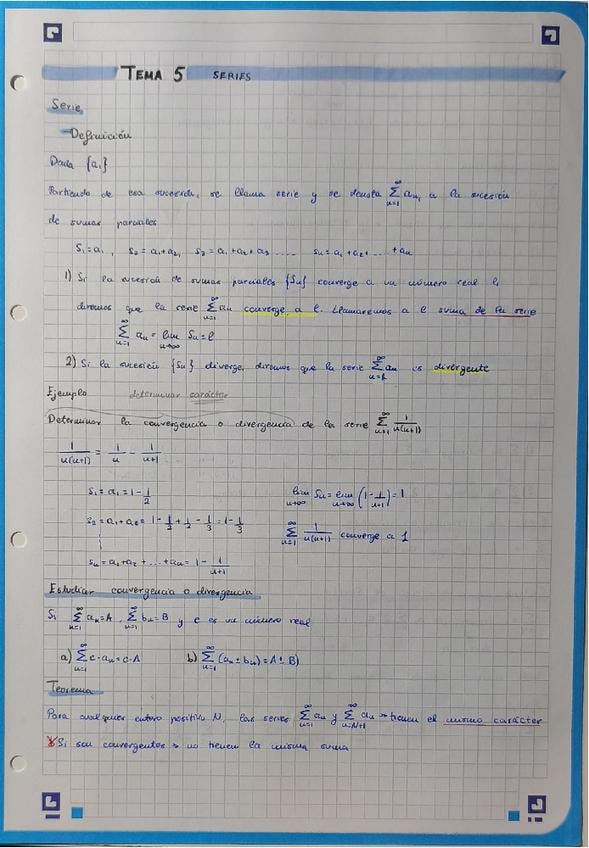 TEMA 5 SERIES
Serie
Definición
Dada {a₁}
Partiendo de esa sucesión, se llama serie y se denota ∑_{n=1}^∞ aₙ, a la sucesión
de sumas parciales
S₁=a₁, S₂=a₁+a₂, S₃=a₁+a₂+a₃ ..... Sₙ=a₁+a₂+... +aₙ
1) Si la sucesión de sumas parciales {Sₙ} converge a un número real l,
diremos que la serie ∑_{n=1}^∞ aₙ converge a l. Llamaremos a l suma de la serie
∑_{n=1}^∞ aₙ = lim_{n→∞} Sₙ = l
2) Si la sucesión {Sₙ} diverge, diremos que la serie ∑_{n=1}^∞ aₙ es divergente
Ejemplo determinar carácter
Determinar la convergencia o divergencia de la serie ∑_{n=1}^∞ 1/(n(n+1))
1/(n(n+1)) = 1/n - 1/(n+1)
S₁=a₁=1-1/2 lim_{n→∞} Sₙ = lim_{n→∞} (1-1/(n+1)) = 1
S₂=a₁+a₂=1-1/2+1/2-1/3=1-1/3 ∑_{n=1}^∞ 1/(n(n+1)) converge a 1
Sₙ=a₁+a₂+...+aₙ=1-1/(n+1)
Estudiar convergencia o divergencia
Si ∑_{n=1}^∞ aₙ=A, ∑_{n=1}^∞ bₙ=B y c es un número real
a) ∑_{n=1}^∞ c·aₙ=c·A b) ∑_{n=1}^∞ (aₙ±bₙ)=A±B)
Teorema
Para cualquier entero positivo N, las series ∑_{n=1}^∞ aₙ y ∑_{n=N+1}^∞ aₙ → tienen el mismo carácter
*Si son convergentes → no tienen la misma suma